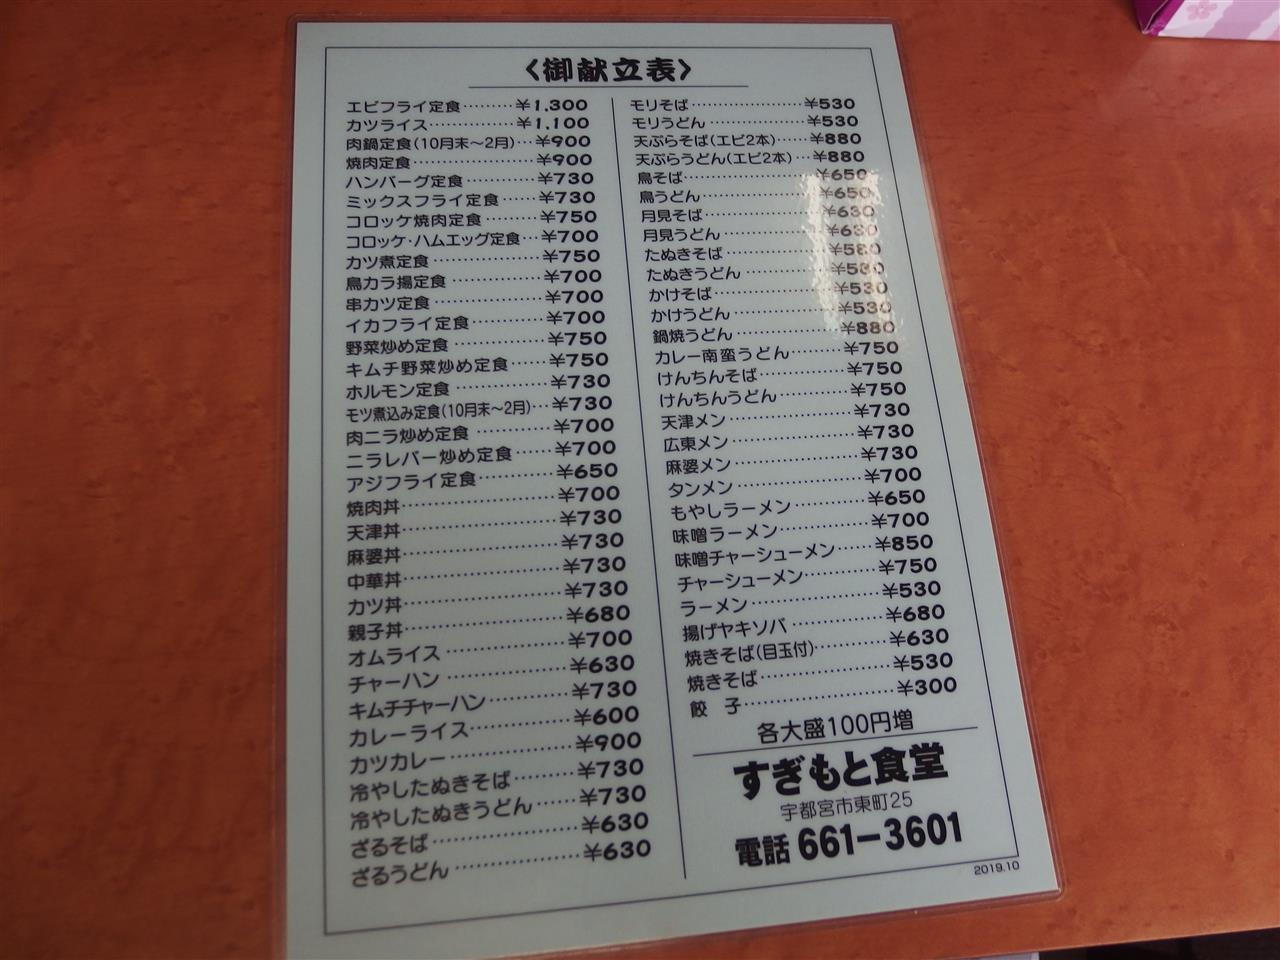 〈御献立表〉
エビフライ定食‥‥‥‥¥1,300
カツライス‥‥‥‥‥¥1,100
肉鍋定食(10月末〜2月)‥¥900
焼肉定食‥‥‥‥‥‥¥900
ハンバーグ定食‥‥‥‥¥730
ミックスフライ定食‥‥¥730
コロッケ焼肉定食‥‥‥¥750
コロッケ・ハムエッグ定食‥¥700
カツ煮定食‥‥‥‥‥¥750
鳥カラ揚定食‥‥‥‥¥700
串カツ定食‥‥‥‥‥¥700
イカフライ定食‥‥‥‥¥700
野菜炒め定食‥‥‥‥¥750
キムチ野菜炒め定食‥‥¥750
ホルモン定食‥‥‥‥¥730
モツ煮込み定食(10月末〜2月)‥¥730
肉ニラ炒め定食‥‥‥‥¥700
ニラレバー炒め定食‥‥¥700
アジフライ定食‥‥‥‥¥650
焼肉丼‥‥‥‥‥‥‥¥700
天津丼‥‥‥‥‥‥‥¥730
麻婆丼‥‥‥‥‥‥‥¥730
中華丼‥‥‥‥‥‥‥¥730
カツ丼‥‥‥‥‥‥‥¥730
親子丼‥‥‥‥‥‥‥¥680
オムライス‥‥‥‥‥¥700
チャーハン‥‥‥‥‥¥630
キムチチャーハン‥‥‥¥730
カレーライス‥‥‥‥‥¥600
カツカレー‥‥‥‥‥¥900
冷やしたぬきそば‥‥‥¥730
冷やしたぬきうどん‥‥¥730
ざるそば‥‥‥‥‥‥¥630
ざるうどん‥‥‥‥‥¥630
モリそば‥‥‥‥‥‥¥530
モリうどん‥‥‥‥‥¥530
天ぷらそば(エビ2本)‥‥¥880
天ぷらうどん(エビ2本)‥¥880
鳥そば‥‥‥‥‥‥‥¥650
鳥うどん‥‥‥‥‥‥¥650
月見そば‥‥‥‥‥‥¥630
月見うどん‥‥‥‥‥¥630
たぬきそば‥‥‥‥‥¥580
たぬきうどん‥‥‥‥
かけそば‥‥‥‥‥‥¥530
かけうどん‥‥‥‥‥¥530
鍋焼うどん‥‥‥‥‥¥880
カレー南蛮うどん‥‥‥¥750
けんちんそば‥‥‥‥¥750
けんちんうどん‥‥‥‥¥750
天津メン‥‥‥‥‥‥¥730
広東メン‥‥‥‥‥‥¥730
麻婆メン‥‥‥‥‥‥¥730
タンメン‥‥‥‥‥‥¥700
もやしラーメン‥‥‥‥¥650
味噌ラーメン‥‥‥‥¥700
味噌チャーシューメン‥¥850
チャーシューメン‥‥‥¥750
ラーメン‥‥‥‥‥‥¥530
揚げヤキソバ‥‥‥‥¥680
焼きそば(目玉付)‥‥‥¥630
焼きそば‥‥‥‥‥‥¥530
餃 子‥‥‥‥‥‥‥¥300
各大盛100円増
すぎもと食堂
宇都宮市東町25
電話 661−3601
2019.10